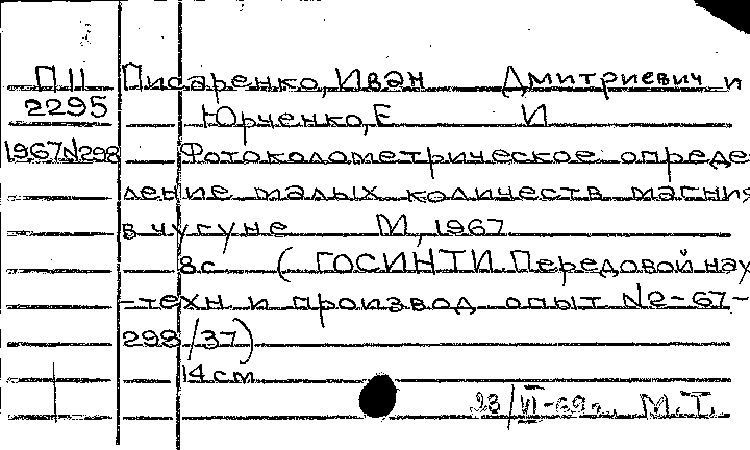 П II Писаренко, Иван Дмитриевич и
2295 Юрченко, Е И
1967N298 Фотоколометрическое опреде-
ление малых количеств магния
в чугуне М, 1967
8с (ГОСИНТИ. Передовой науч
-техн и производ опыт N2-67-
298/37)
14 см
28/VI-69г. М.Т.